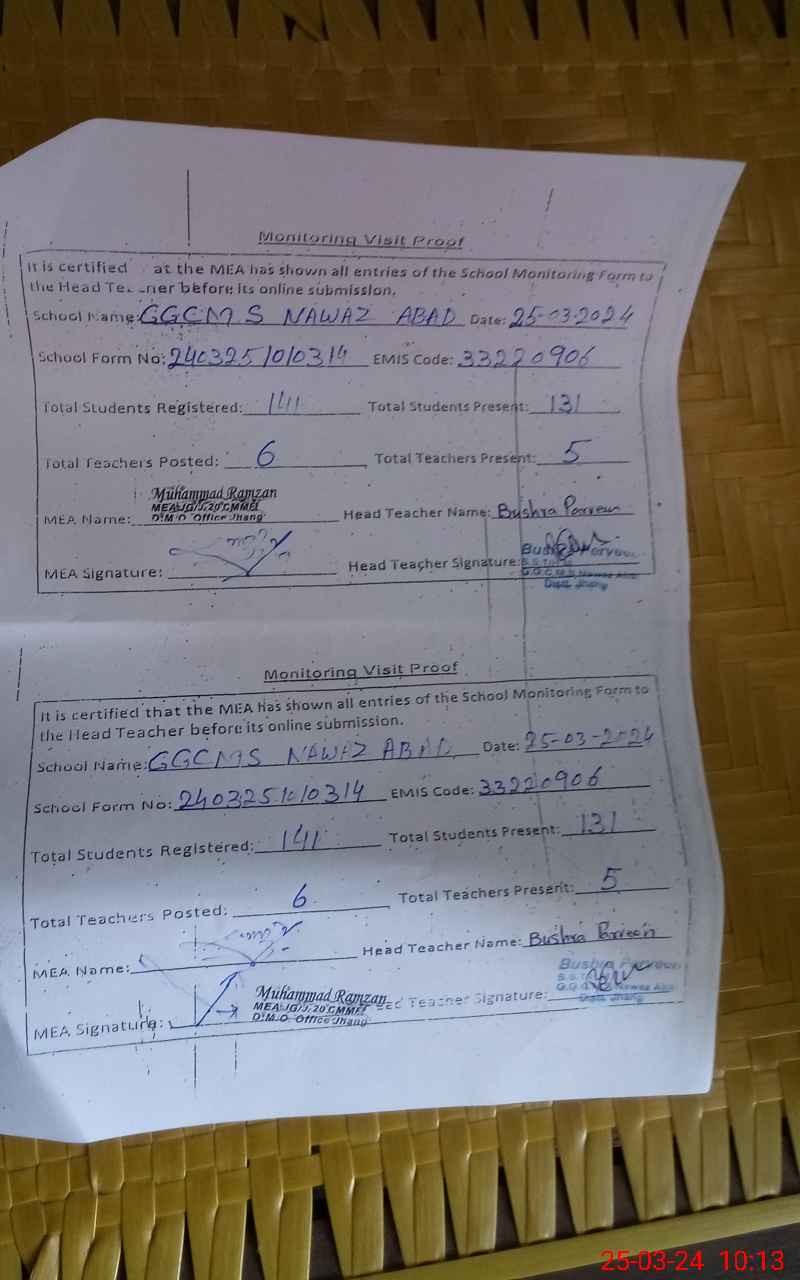 Monitoring Visit Proof
It is certified at the MEA has shown all entries of the School Monitoring Form to
the Head Te ner before its online submission.
School Name: GGCMS NAWAZ ABAD Date: 25-03-2024
School Form No: 2403251010314 EMIS Code: 33220906
Total Students Registered: 141 Total Students Present: 131
Total Teachers Posted: 6 Total Teachers Present: 5
Muhammad Ramzan
MEA
D.M.O Office Jhang
MEA Name: Head Teacher Name: Bushra Parveen
Bushra Parveen
MEA Signature: Head Teacher Signature:
G.G.C.M.S Nawaz Abad
Distt. Jhang
Monitoring Visit Proof
It is certified that the MEA has shown all entries of the School Monitoring Form to
the Head Teacher before its online submission.
School Name: GGCMS NAWAZ ABAD Date: 25-03-2024
School Form No: 2403251010314 EMIS Code: 33220906
Total Students Registered: 141 Total Students Present: 131
Total Teachers Posted: 6 Total Teachers Present: 5
MEA Name: Head Teacher Name: Bushra Parveen
Bushra Parveen
Muhammad Ramzan
MEA Signature: Teacher Signature:
MEA
D.M.O Office Jhang
Distt. Jhang
25-03-24 10:13